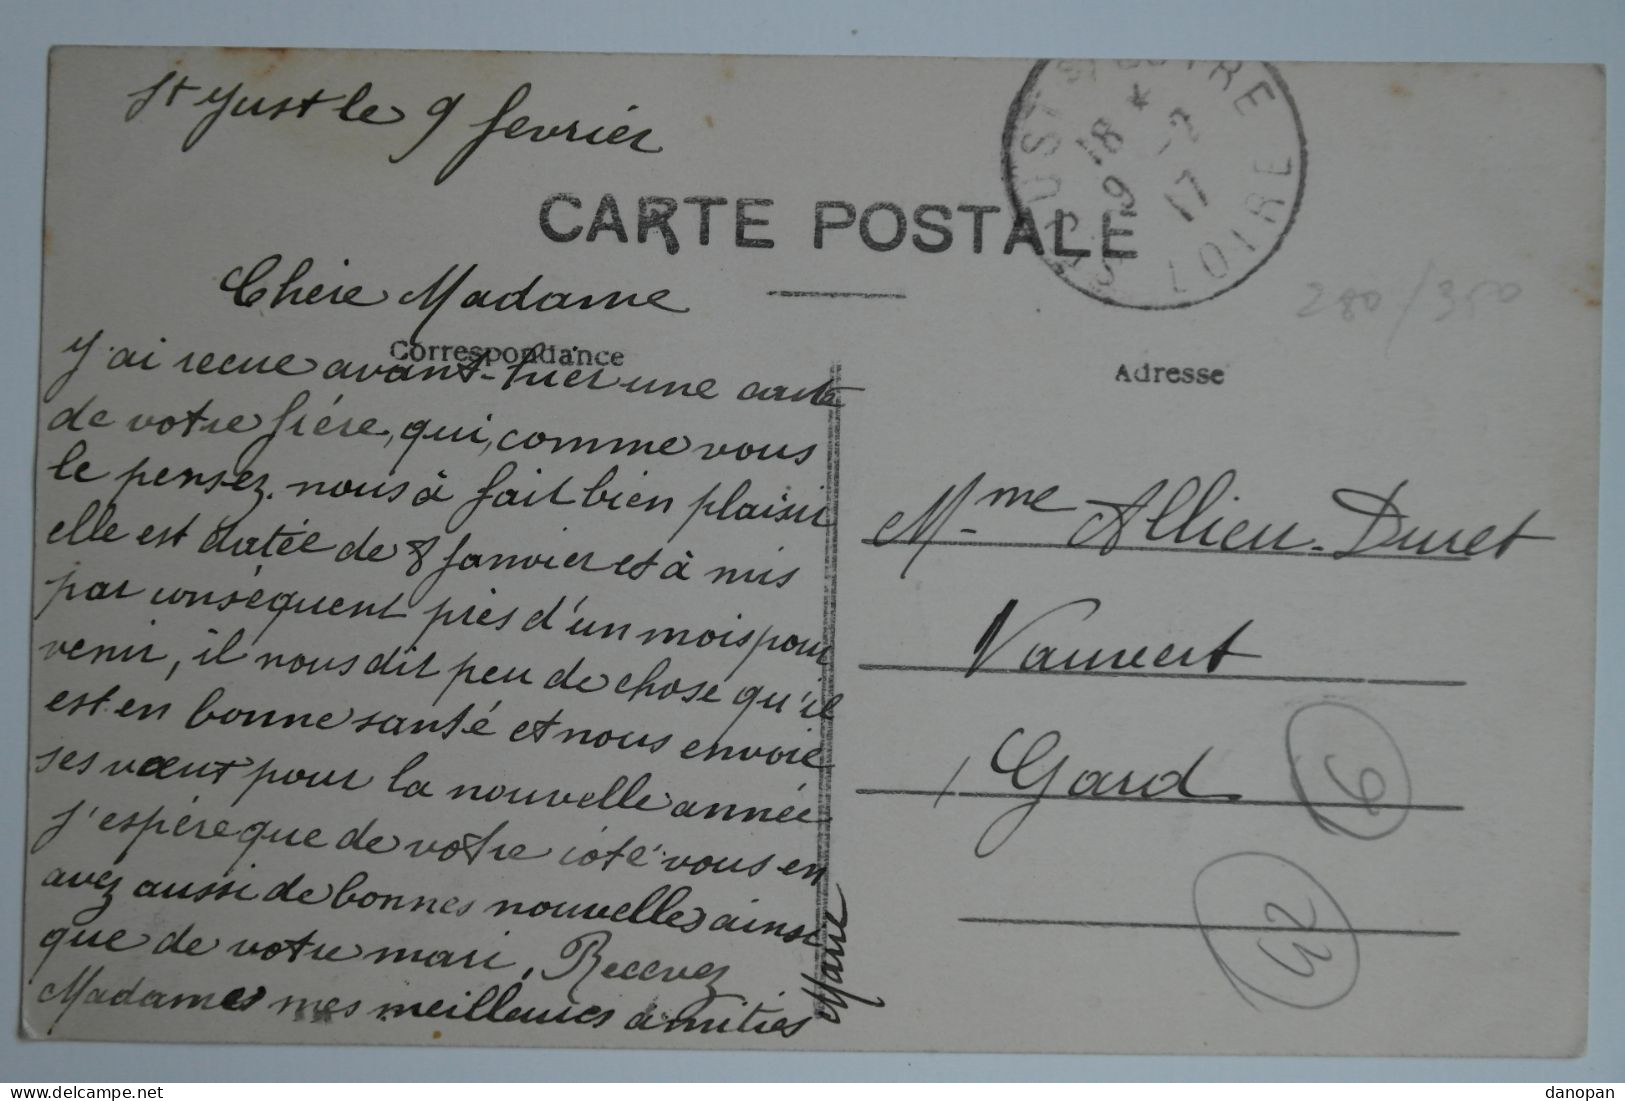 St Just le 9 fevrier
ST JUST S/ LOIRE
18 *
9 -2
17
LOIRE
CARTE POSTALE
280/350
Chère Madame
Correspondance
Adresse
J'ai recue avant-hier une carte
de votre frère, qui, comme vous
le pensez. nous à fait bien plaisir
elle est datée de 8 Janvier et à mis
par conséquent près d'un mois pour
venir, il nous dit peu de chose qu'il
est en bonne santé et nous envoie
ses vœux pour la nouvelle année
j'espère que de votre côté vous en
avez aussi de bonnes nouvelles ainsi
que de votre mari. Recevez
Madames mes meilleures amitiés
Marie
Mme Allieu-Duret
Vauvert
Gard
6
42
www.delcampe.net
danopan